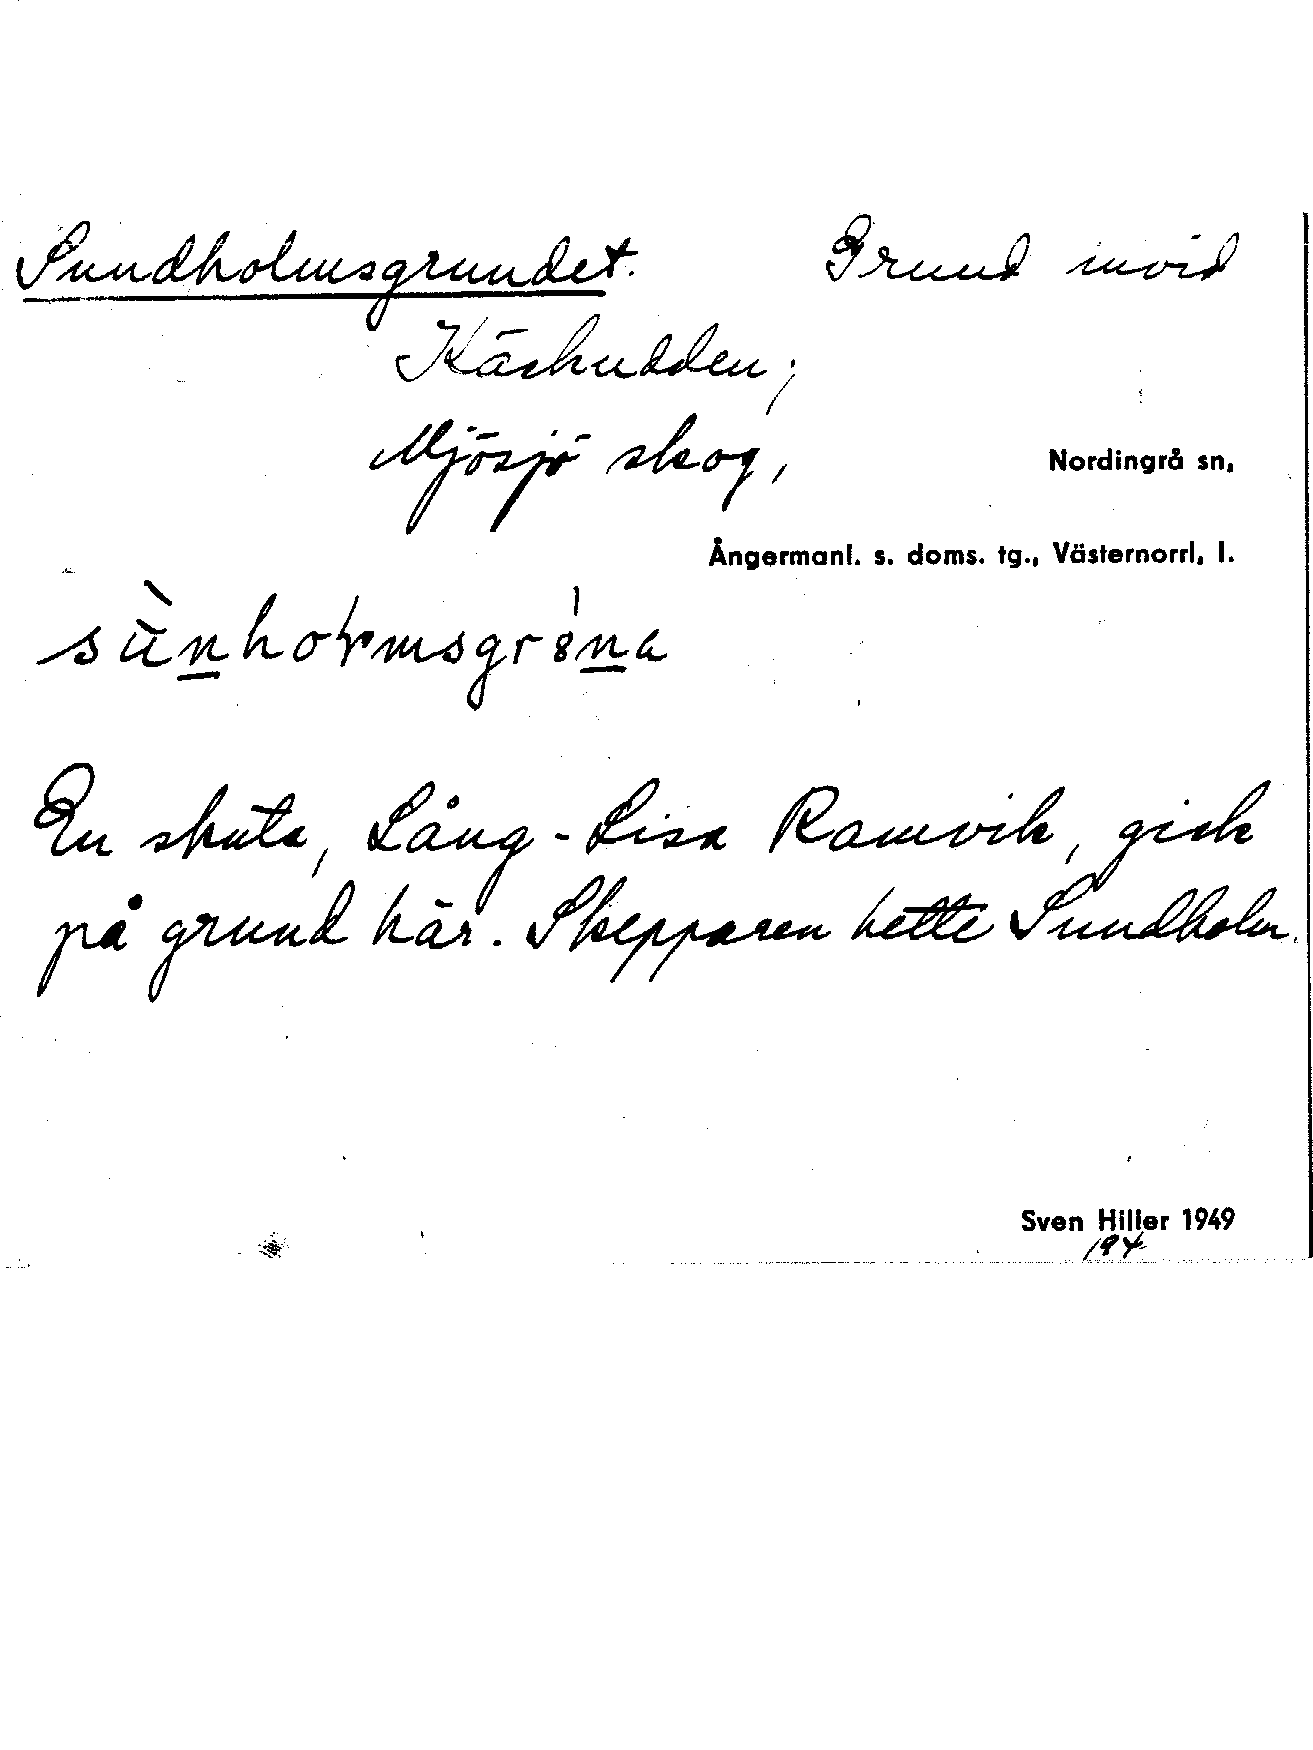 Sundholmsgrundet. Grund invid
Käckudden;
Mjösjö skog, Nordingrå sn,
Ångermanl. s. doms. tg., Västernorrl. l.
En skuta, Lång-Lisa Ramvik, gick
på grund här. Skepparen hette Sundholm.
Sven Hiller 1949
194